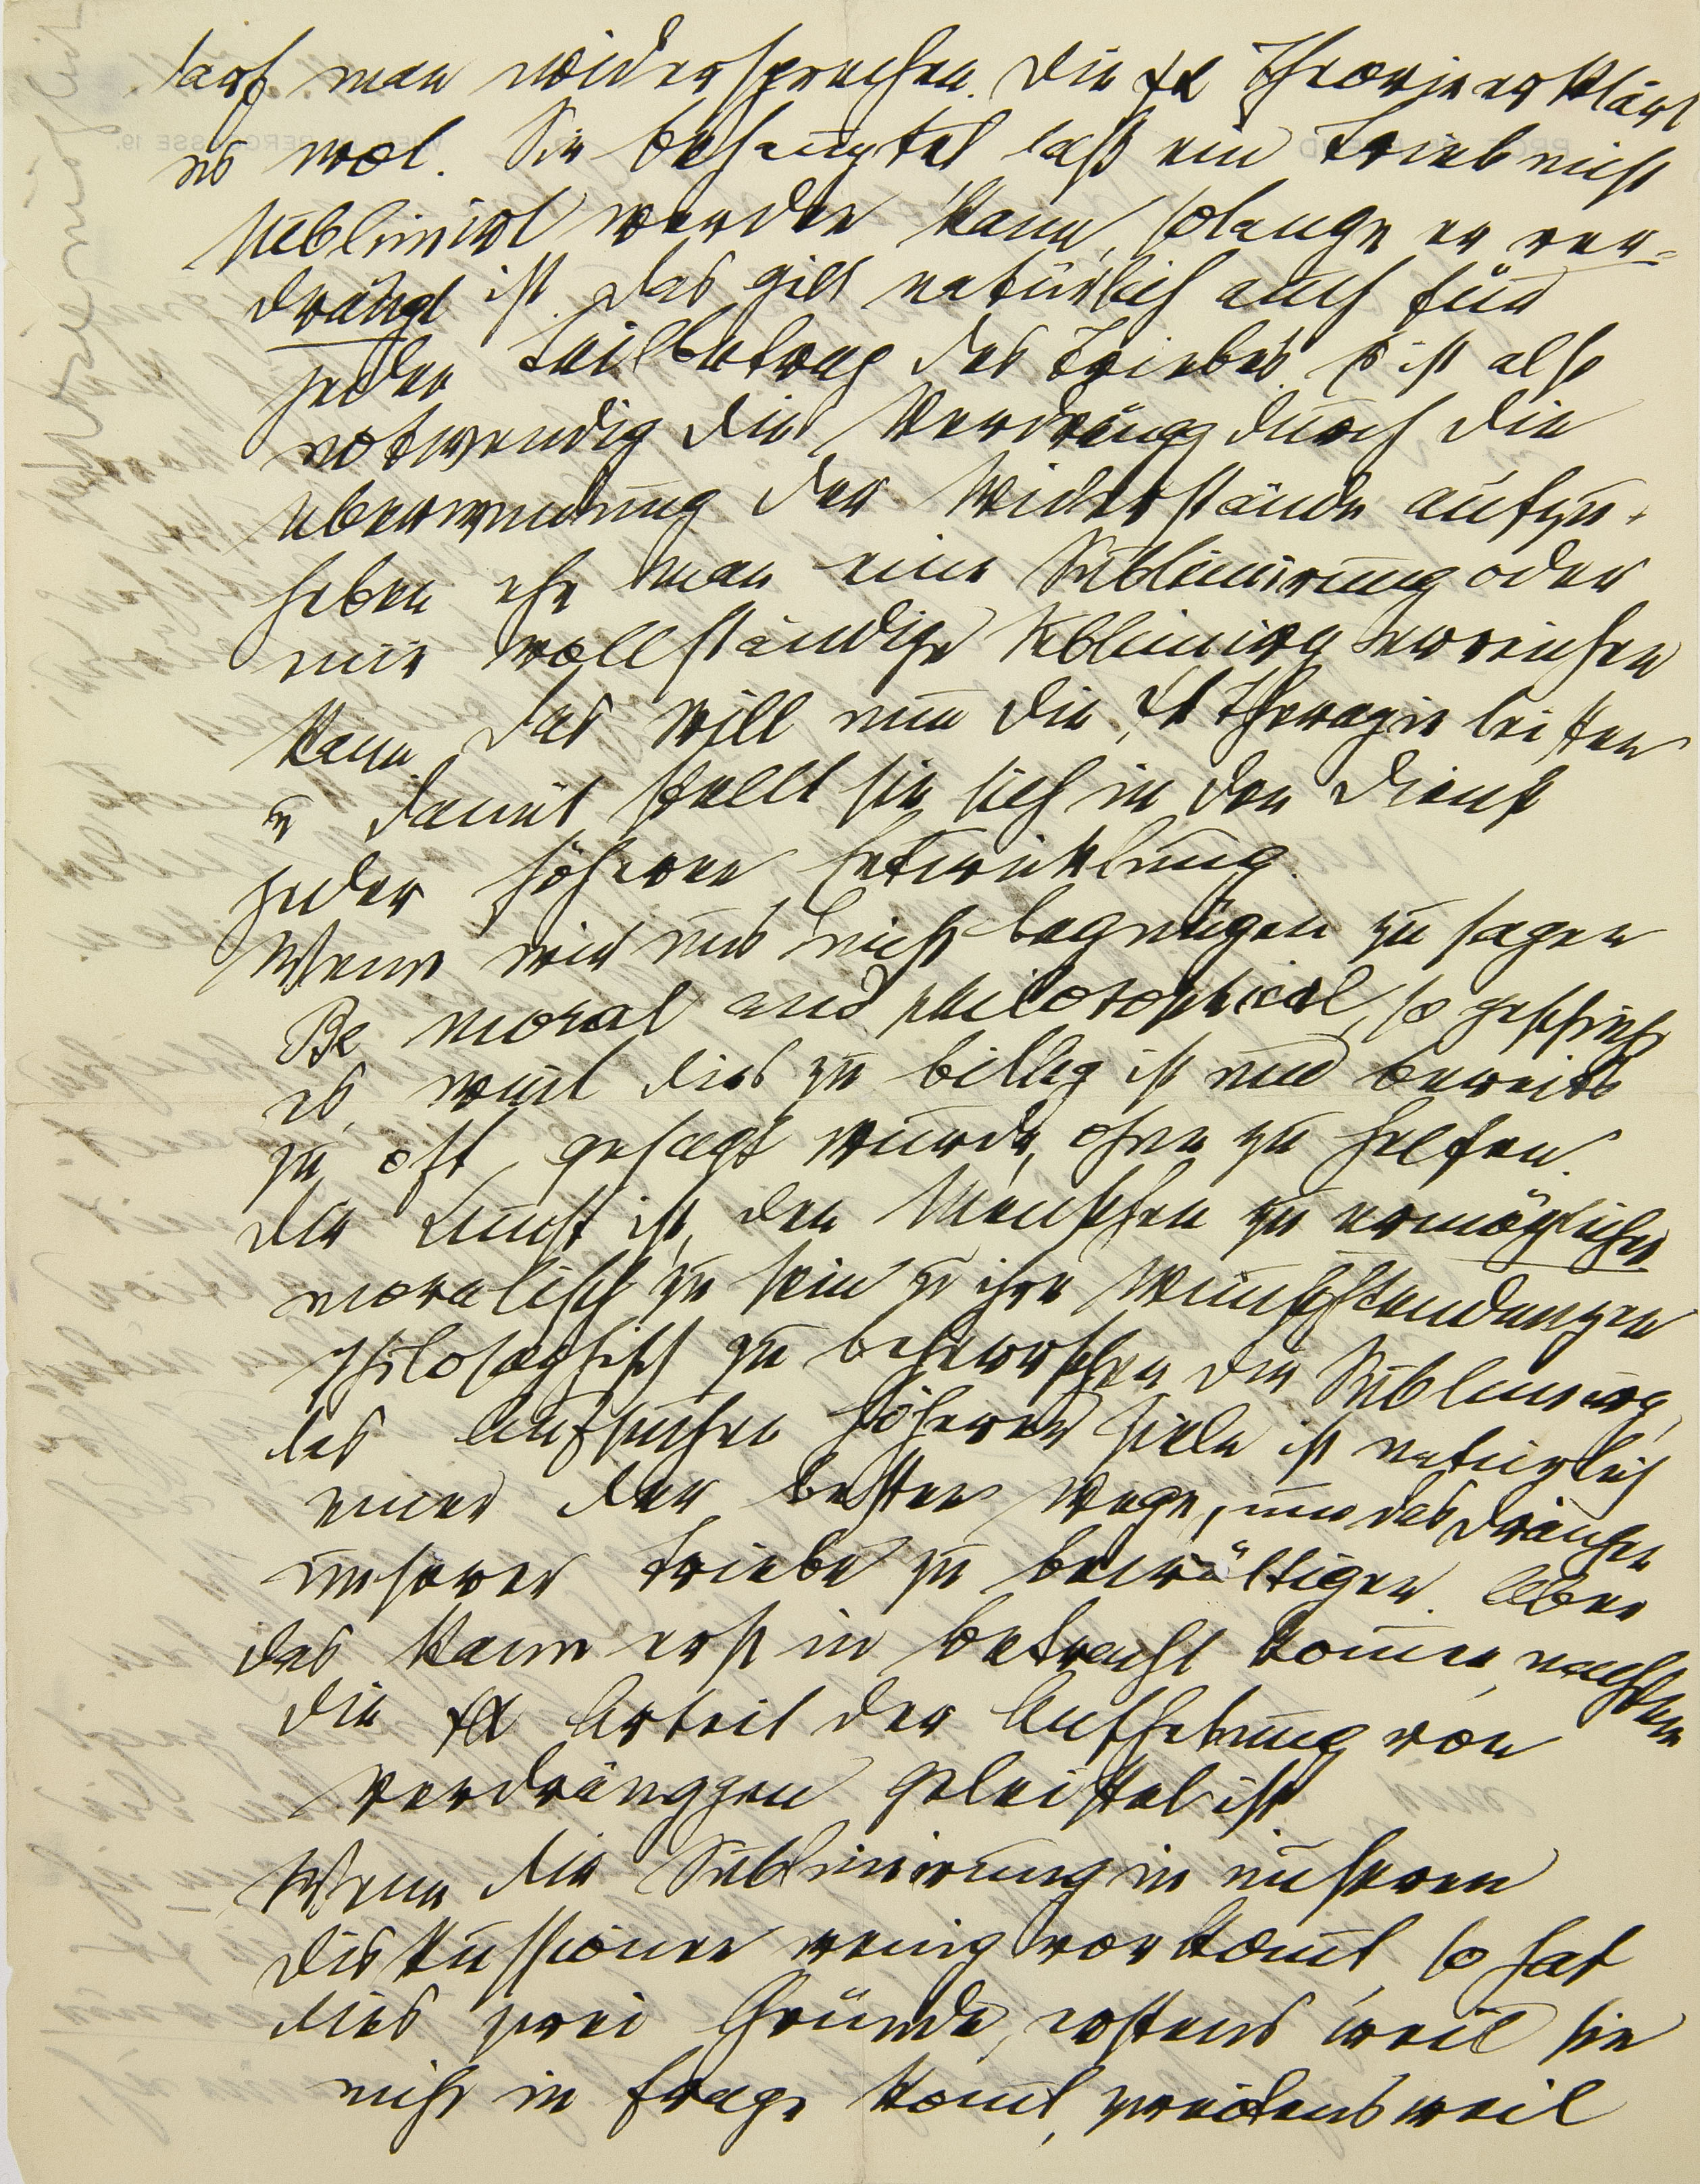 darf man widersprechen. Die ψα Theorie erklärt
es wol. Sie behauptet daß ein Trieb nicht
sublimirt werden kann, solange er ver-
drängt ist. Das gilt natürlich auch für
jeden Teilbetrag des Triebes. Es ist also
notwendig die Verdrängg durch die
Überwindung der Widerstände aufzu-
heben ehe man eine Sublimirung oder
eine vollständige Sublimirg erreichen
kann. Das will nun die ψα Therapie leisten
u damit stellt sie sich in den Dienst
jeder höheren Entwicklung.
Wenn wir uns nicht begnügen zu sagen
Be moral and philosophical, so geschieht
es, weil dies zu billig ist und bereits
zu oft gesagt wurde, ohne zu helfen.
Die Kunst ist, den Menschen zu ermöglichen
moralisch zu sein u ihre Wunschtendenzen
philosophisch zu beherrschen. Die Sublimirg,
das Aufsuchen höherer Ziele ist natürlich
einer der besten Wege, um das Drängen
unserer Triebe zu bewältigen. Aber
das kann erst in Betracht kom̅en, nachdem
die ψα Arbeit der Aufhebung von
Verdränggen geleistet ist
Wenn die Sublimirung in unseren
Diskussionen wenig vorkom̅t, so hat
dies zwei Gründe, erstens weil sie
nicht in Frage kom̅t, zweitens weil